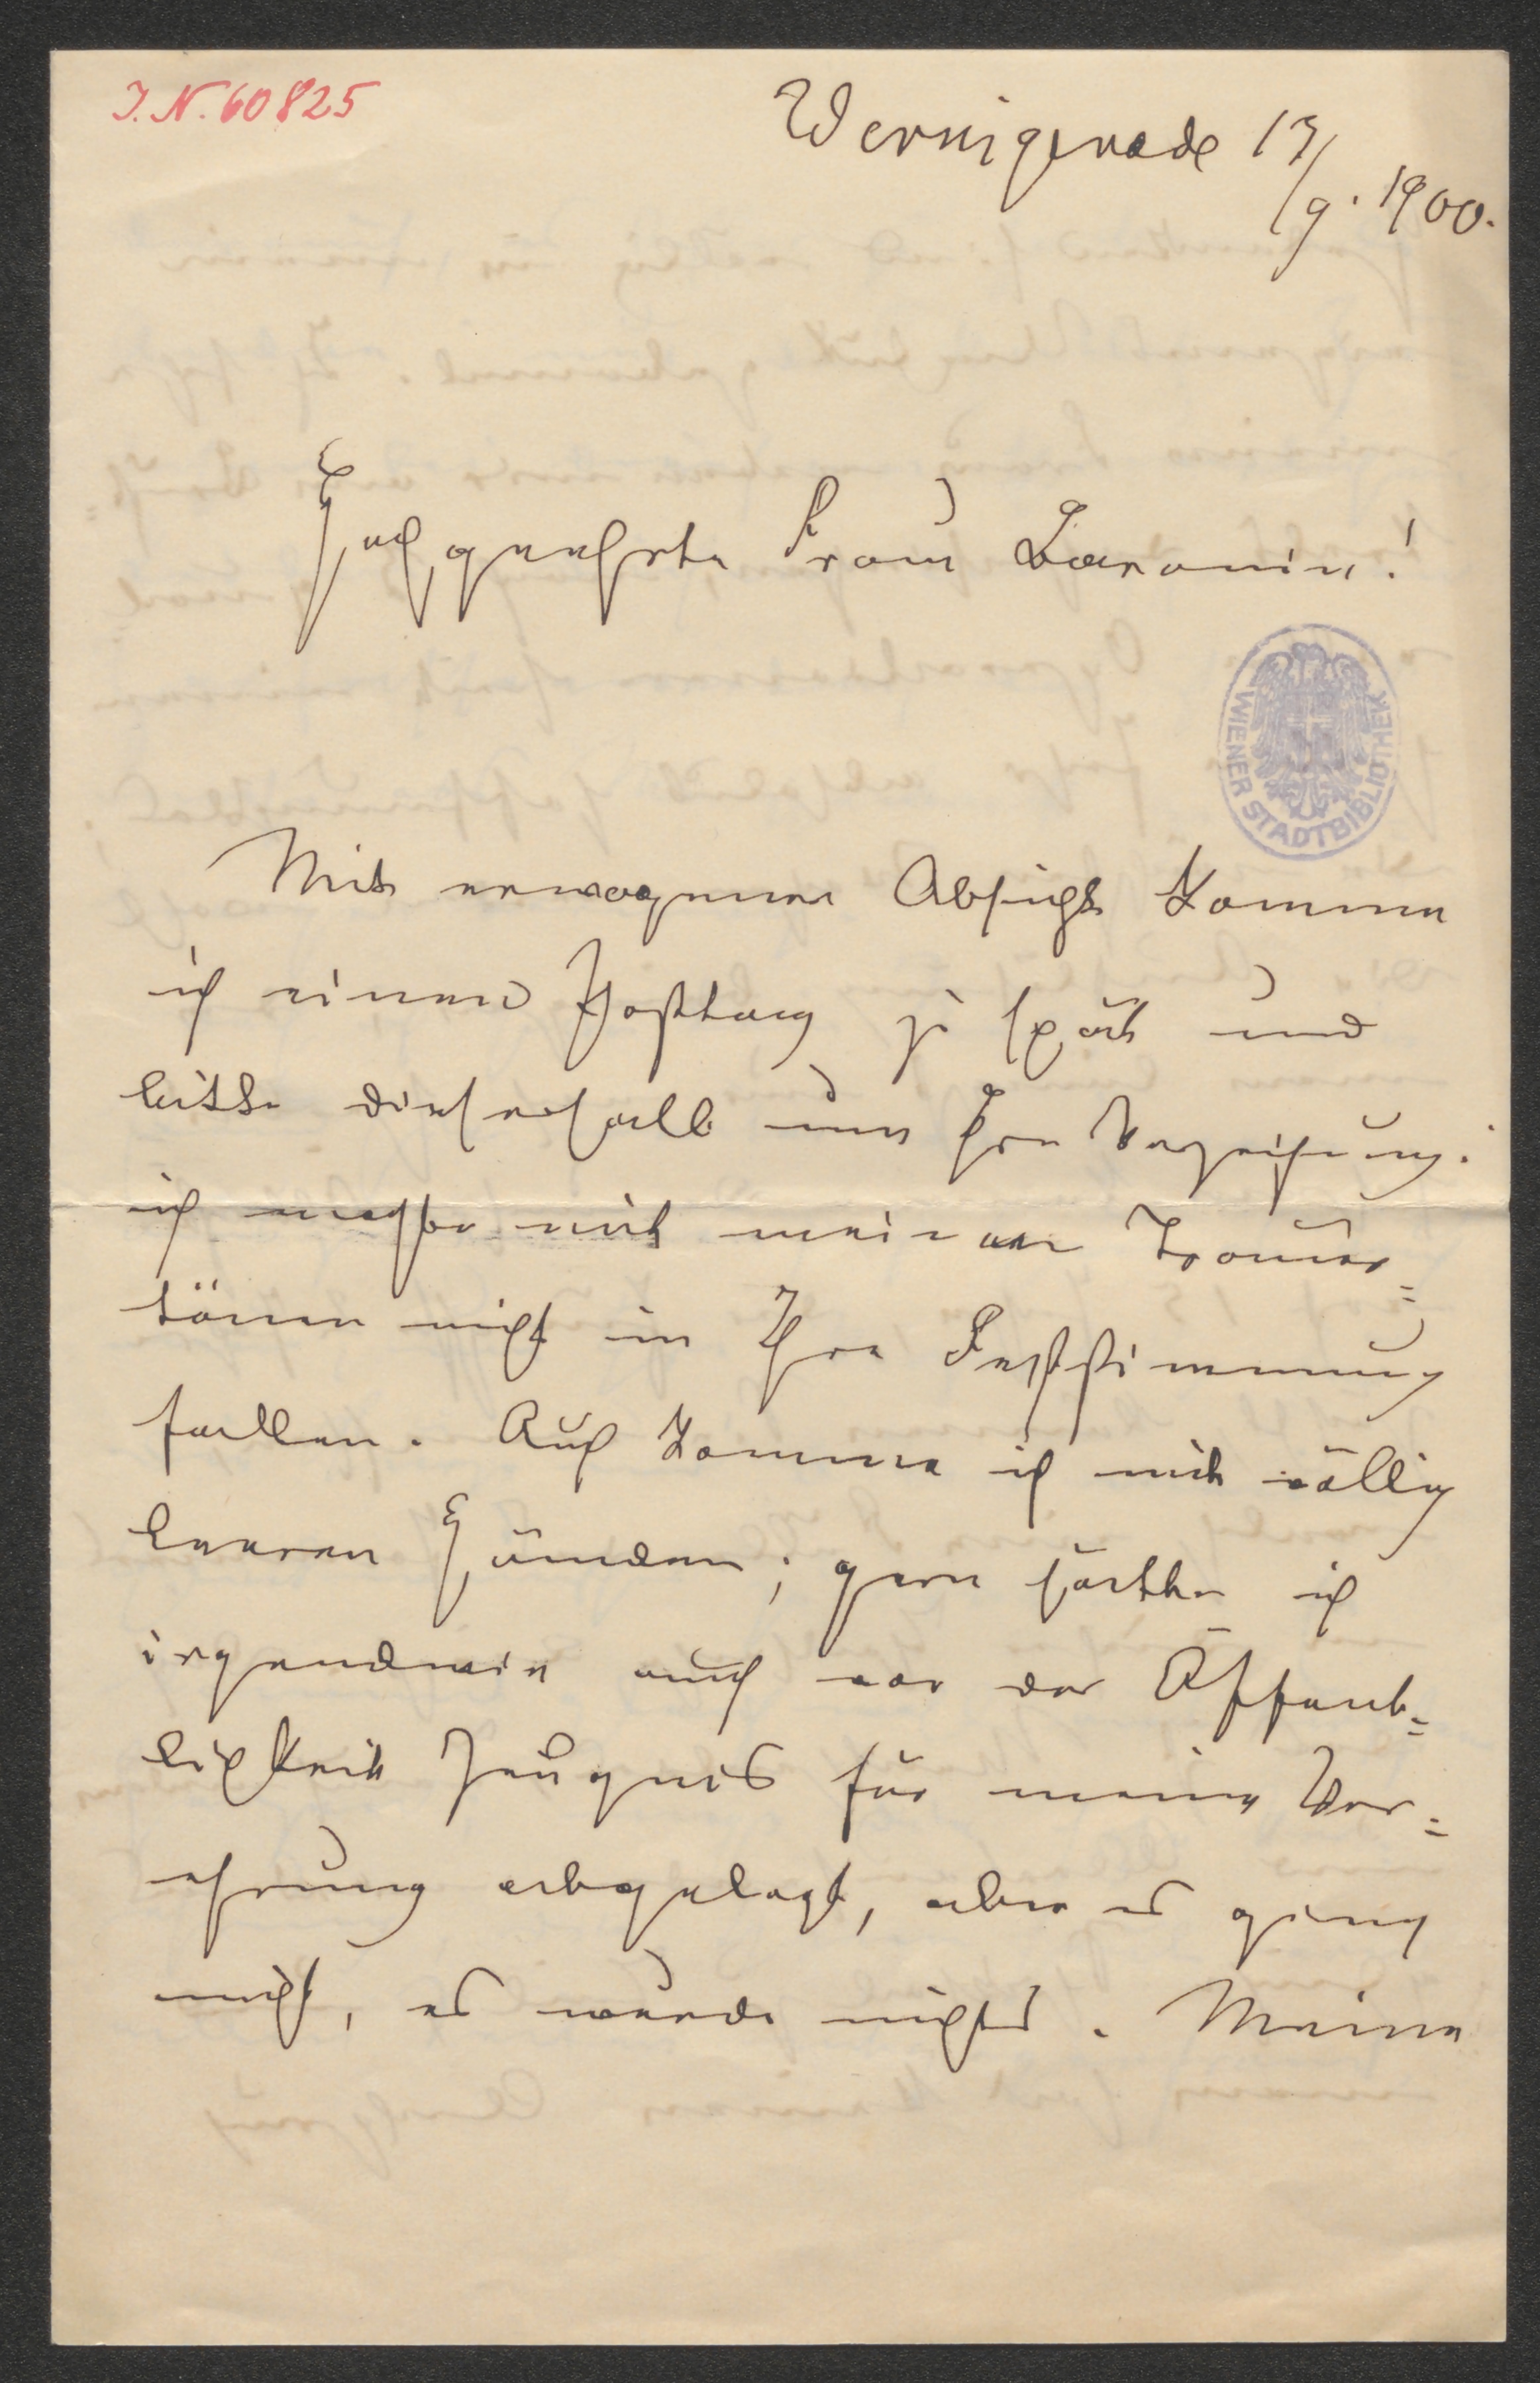 I. N. 60825
Wernigerode 13/
/9. 1900.
Hochgeehrte Frau Baronin!
WIENER STADTBIBLIOTHEK
Mit erwogener Absicht komme
ich einen Posttag zu spät und
bitte dieserhalb um Ihre Verzeihung:
ich mochte mit meinen Trauer=
tönen nicht in Ihre Feststimmung
fallen. Auch komme ich mit völlig
leeren Händen; gern hätte ich
irgendwie auch vor der Öffent=
lichkeit Zeugnis für meine Ver=
ehrung abgelegt, aber es ging
nicht, es wurde nichts. Meine